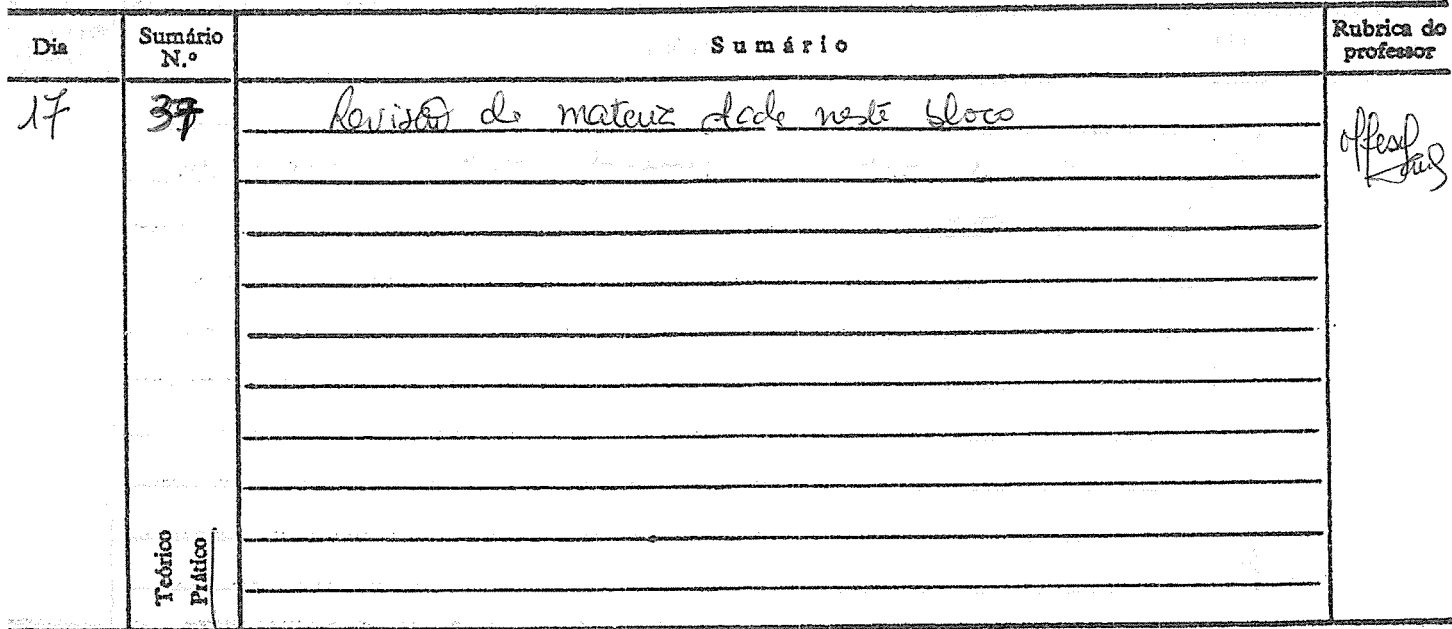 Dia
Sumário N.º
Sumário
Rubrica do professor
17
37
Revisão da matéria dada neste bloco
Teórico
Prático